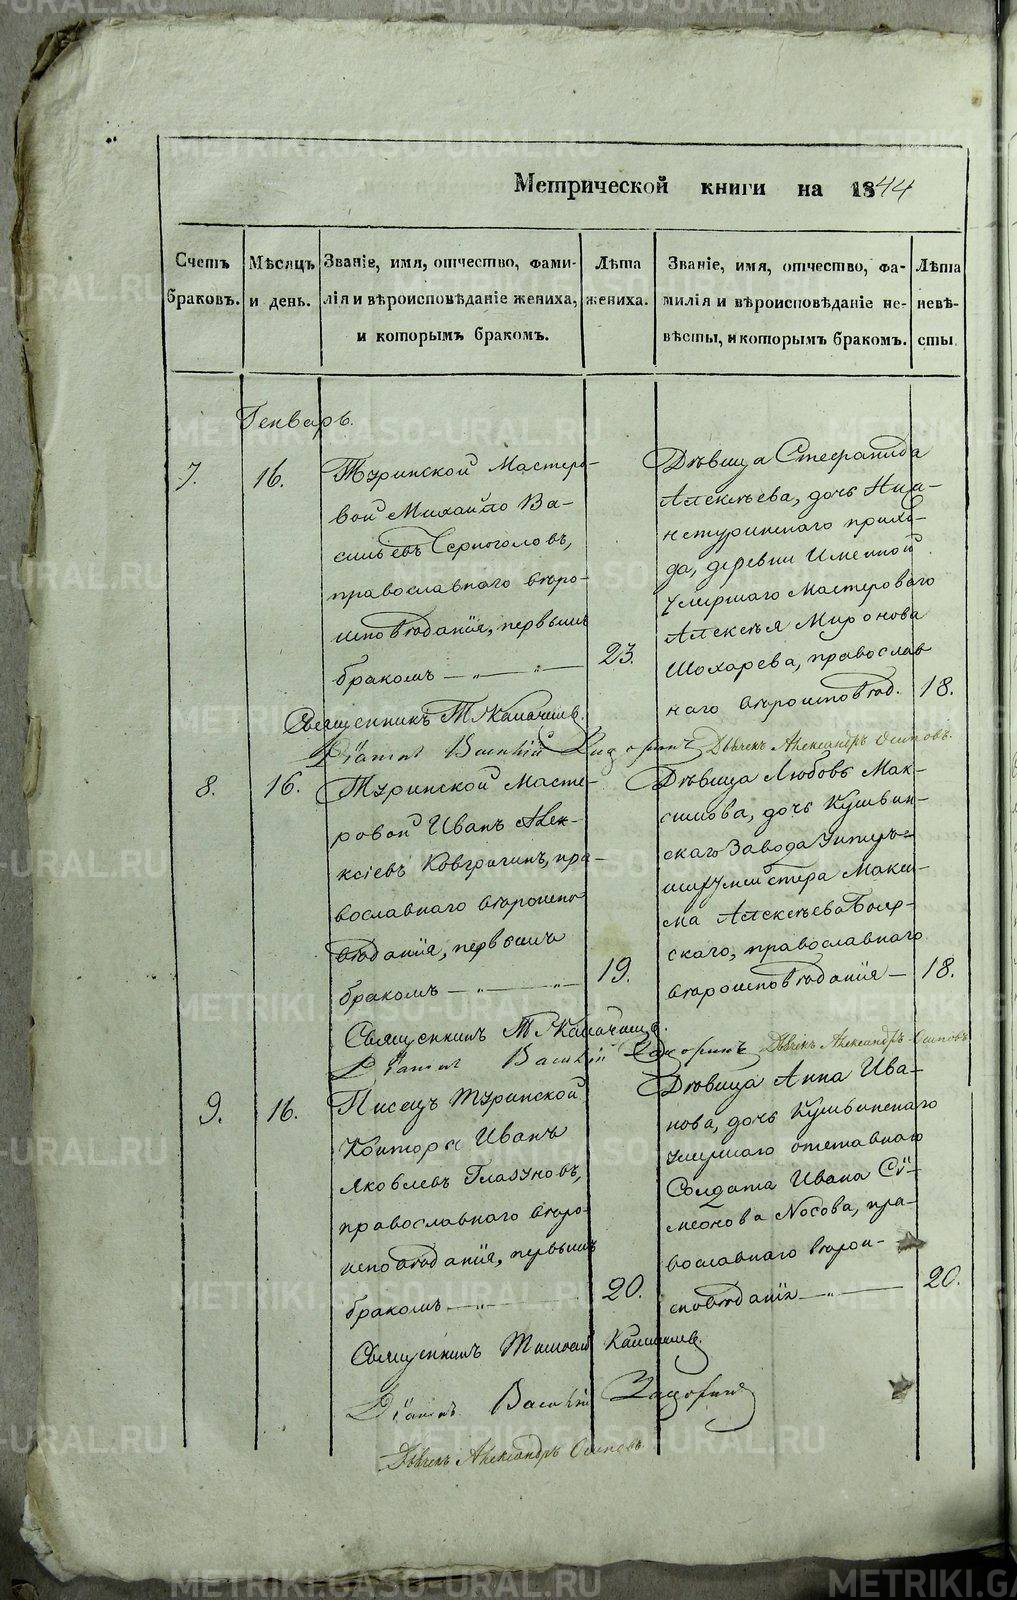 Метрической книги на 1844
Счетъ браковъ.
Мѣсяцъ и день.
Званіе, имя, отчество, фами-
лія и вѣроисповѣданіе жениха,
и которымъ бракомъ.
Лѣта жениха.
Званіе, имя, отчество, фа-
милія и вѣроисповѣданіе не-
вѣсты, и которымъ бракомъ.
Лѣта невѣ-
сты.
Генварь.
7.
16.
Туринской Мастеро-
вой Михайло Ва-
сильевъ Черноголовъ,
православнаго вѣро-
исповѣданія, первымъ
бракомъ — „ — „ —
23.
Дѣвица Стефанида
Алексѣева, дочь Ниж-
нетуринскаго прихо-
да, деревни Именной
умершаго Мастероваго
Алексѣя Миронова
Шохарева, православ
наго вѣроисповѣд.
18.
Священникъ
Діаконъ Василій Дьячекъ Александръ Осиповъ.
8.
16.
Туринской Масте-
ровой Иванъ Алек-
сіевъ Ковригинъ, пра-
вославнаго вѣроиспо
вѣданія, первымъ
бракомъ — „ — „ —
19.
Дѣвица Любовь Мак-
симова, дочь Кушвин-
скаго Завода Унтеръ=
шихтмейстера Макси-
ма Алексѣева Бояр-
скаго, православнаго
вѣроисповѣданія —
18.
Священникъ
Діаконъ Василій Дьячекъ Александръ Осиповъ
9.
16.
Писецъ Туринской
Конторы Иванъ
Яковлевъ Глазуновъ,
православнаго вѣро-
исповѣданія, первымъ
бракомъ — „ —
20.
Дѣвица Анна Ива-
нова, дочь Кушвинскаго
умершаго отставнаго
Солдата Ивана Сѵ-
меонова Носова, пра-
вославнаго вѣрои-
сповѣданія — „ —
20.
Священникъ
Діаконъ Василій
Дьячекъ Александръ Осиповъ
METRIKI.GASO-URAL.RU